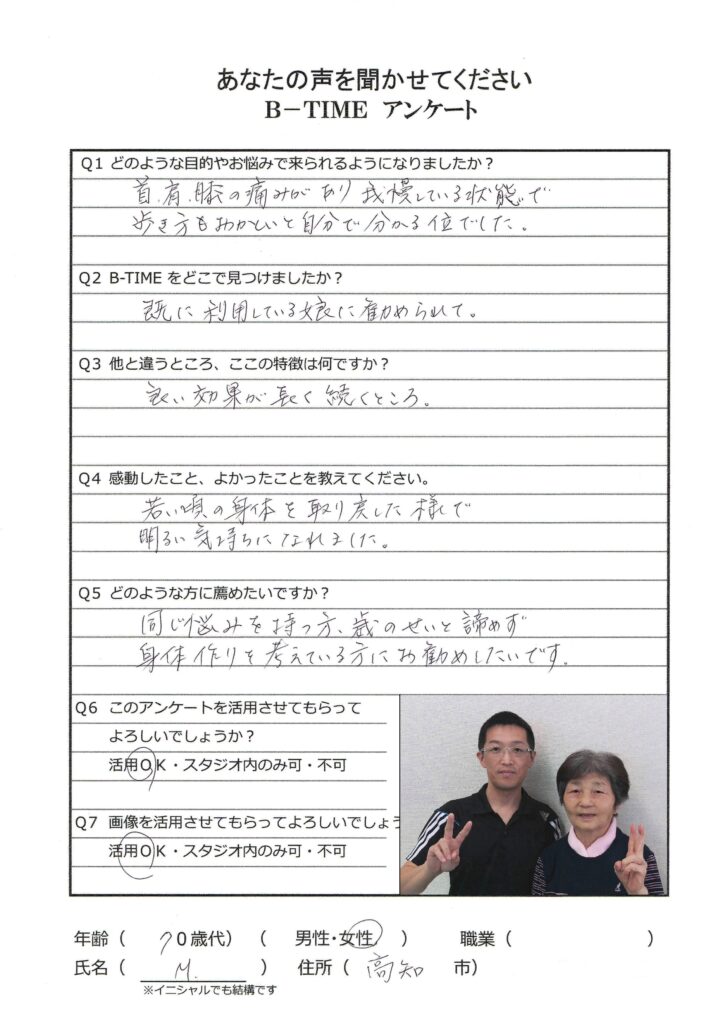 あなたの声を聞かせてください
B－TIME アンケート
Q1 どのような目的やお悩みで来られるようになりましたか？
首.肩.膝の痛みがあり 我慢している状態で
歩き方もおかしいと自分で分かる位でした。
Q2 B-TIME をどこで見つけましたか？
既に利用している娘に勧められて。
Q3 他と違うところ、ここの特徴は何ですか？
良い効果が長く続くところ。
Q4 感動したこと、よかったことを教えてください。
若い頃の身体を取り戻した様で
明るい気持ちになれました。
Q5 どのような方に薦めたいですか？
同じ悩みを持つ方、歳のせいと諦めず
身体作りを考えている方にお勧めしたいです。
Q6 このアンケートを活用させてもらって
よろしいでしょうか？
活用OK・スタジオ内のみ可・不可
Q7 画像を活用させてもらってよろしいでしょう
活用OK・スタジオ内のみ可・不可
年齢（ 70歳代） （ 男性・女性 ） 職業（ ）
氏名（ M. ） 住所（ 高知 市）
※イニシャルでも結構です